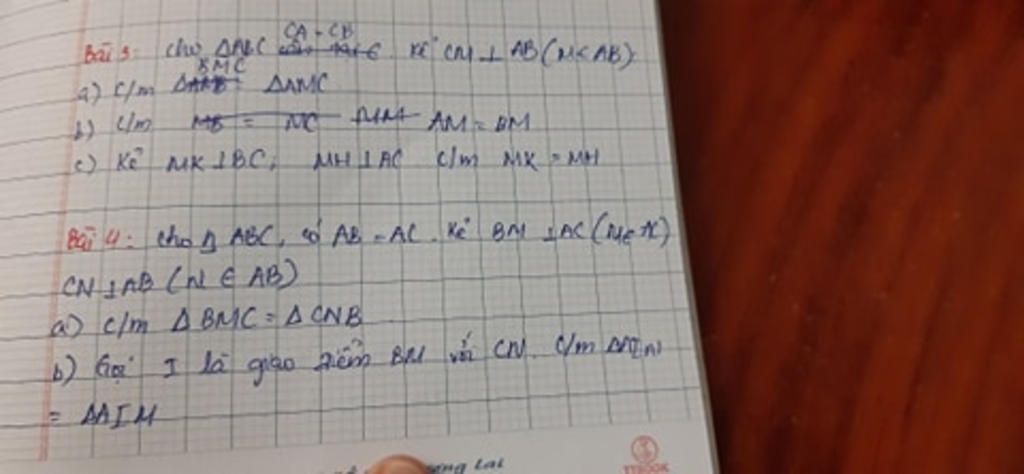 CA = CB
Bài 3: Cho ΔABC kẻ CM ⊥ AB (M ∈ AB)
BMC
a) C/m Δ = ΔAMC
b) C/m MB = MC AM = BM
c) Kẻ MK ⊥ BC, MH ⊥ AC C/m MK = MH
Bài 4: Cho Δ ABC, có AB = AC. Kẻ BM ⊥ AC (M ∈ AC)
CN ⊥ AB (N ∈ AB)
a) C/m Δ BMC = Δ CNB
b) Gọi I là giao điểm BM với CN. C/m ΔAIN
= ΔAIM
lai
TTBOOK